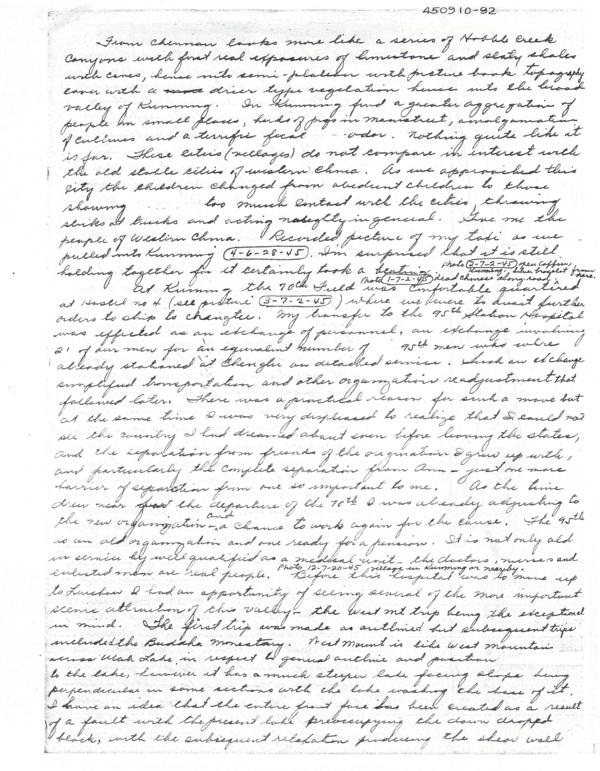 450910-92
From Chennan looks more like a series of Hobble Creek
Canyons with first real exposures of limestone and slaty shales
with caves, hence into semi-plateau with picture book topography
cover with a drier type vegetation hence into the broad
valley of Kunming. In Kunming find a greater aggregation of
people in small places, herds of pigs in mainstreet, amalgamation
of cultures and a terrific fecal odor. Nothing quite like it
so far. These cities (villages) do not compare in interest with
the old stable cities of western China. As we approached this
city the children changed from obedient children to those
showing too much contact with the cities, throwing
sticks at trucks and acting naughty in general. Give me the
people of Western China. Recorded picture of my taxi as we
pulled into Kunming (4-6-28-45). I'm surprised that it is still
holding together for it certainly took a beating. Photo (2-7-2-45) open coffin
Kunming, silver bracelet from
Photo (1-7-2-45) dead chinese along road
At Kunming the 70th Field was comfortable quartered
at Hostel no 4 (see picture (3-7-2-45)) where we were to await further
orders to ship to . My transfer to the 95th Station Hospital
was effected as an exchange of personnel, an exchange involving
21 of our men for an equivalent number of 95th men who were
already stationed at Chengtu on detached service. Such an exchange
simplified transportation and other organization readjustment that
followed later. There was a practical reason for such a move but
at the same time I was very displeased to realize that I could not
see the country I had dreamed about even before leaving the states,
and the separation from friends of the organization I grew up with,
and particularly the complete separation from Ann - just one more
barrier of separation from one so important to me. As the time
drew near for the departure of the 70th I was already adjusting to
the new organization and a chance to work again for the cause. The 95th
is an old organization and one ready for a pension. It is not only old
in service but well qualified as a medical unit - the doctors, nurses and
enlisted men are real people. Photo 12-7-20-45 village in Kunming or nearby.
Before this hospital was to move up
to I had an opportunity of seeing several of the more important
scenic attraction of this valley - the West Mt trip being the exceptional
in mind. The first trip was made as outlined but subsequent trips
included the Buddha Monastary. West Mount is like West Mountain
across Utah Lake, in respect to general outline and position
to the lake, however it has a much steeper lake facing slope being
perpendicular in some sections with the lake washing the base of it.
I have an idea that the entire front face has been created as a result
of a fault with the present lake preoccupying the down dropped
block, with the subsequent relaxation producing the shear wall